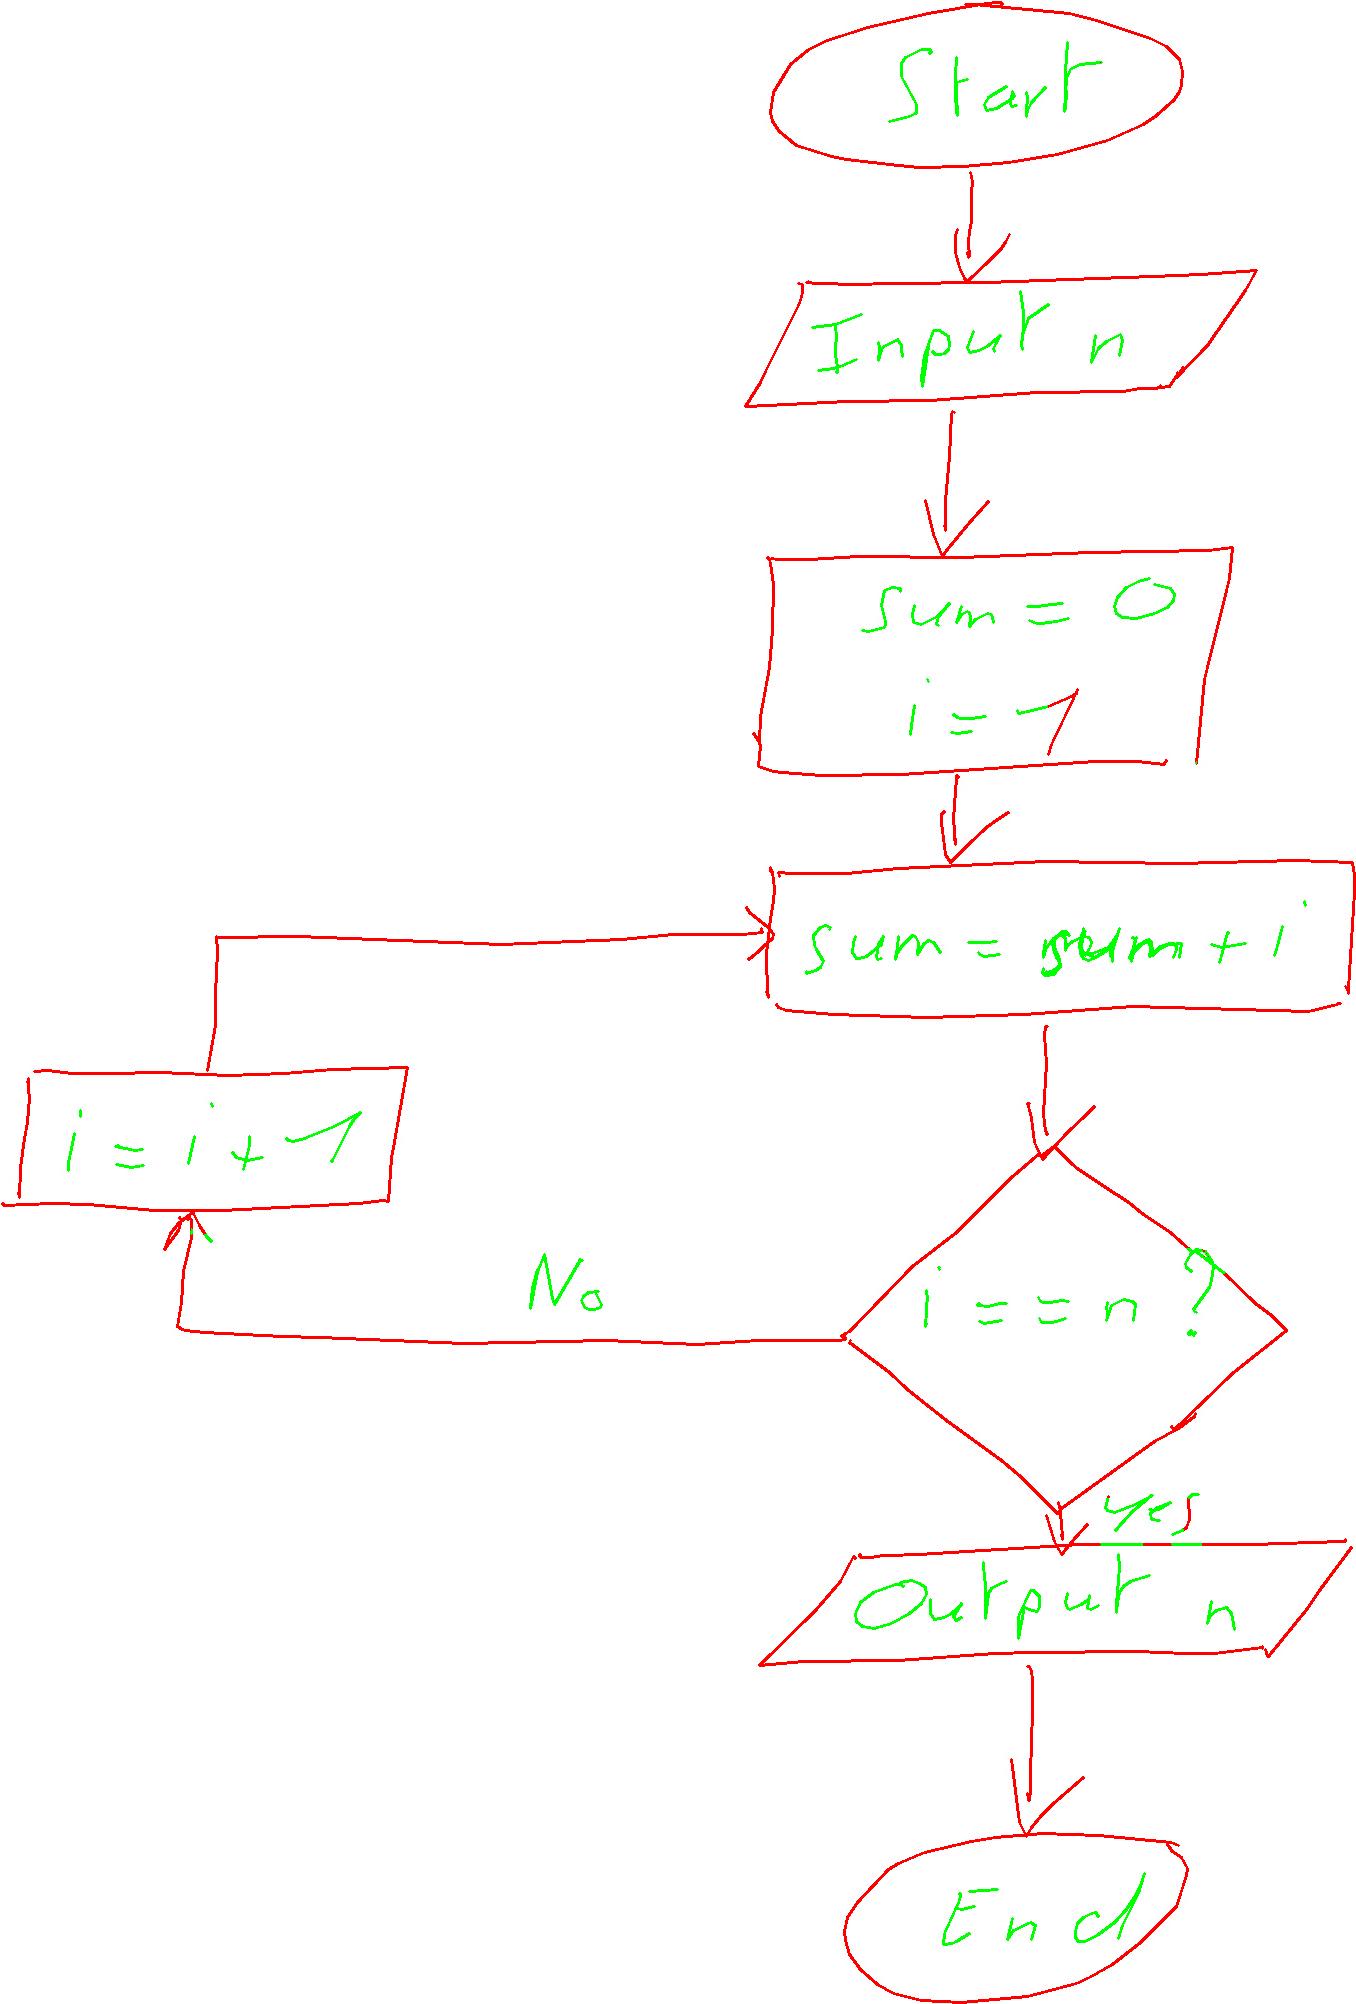 Start
Input n
sum = 0
i = 1
sum = sum + i
i = i + 1
i == n ?
No
yes
Output n
End